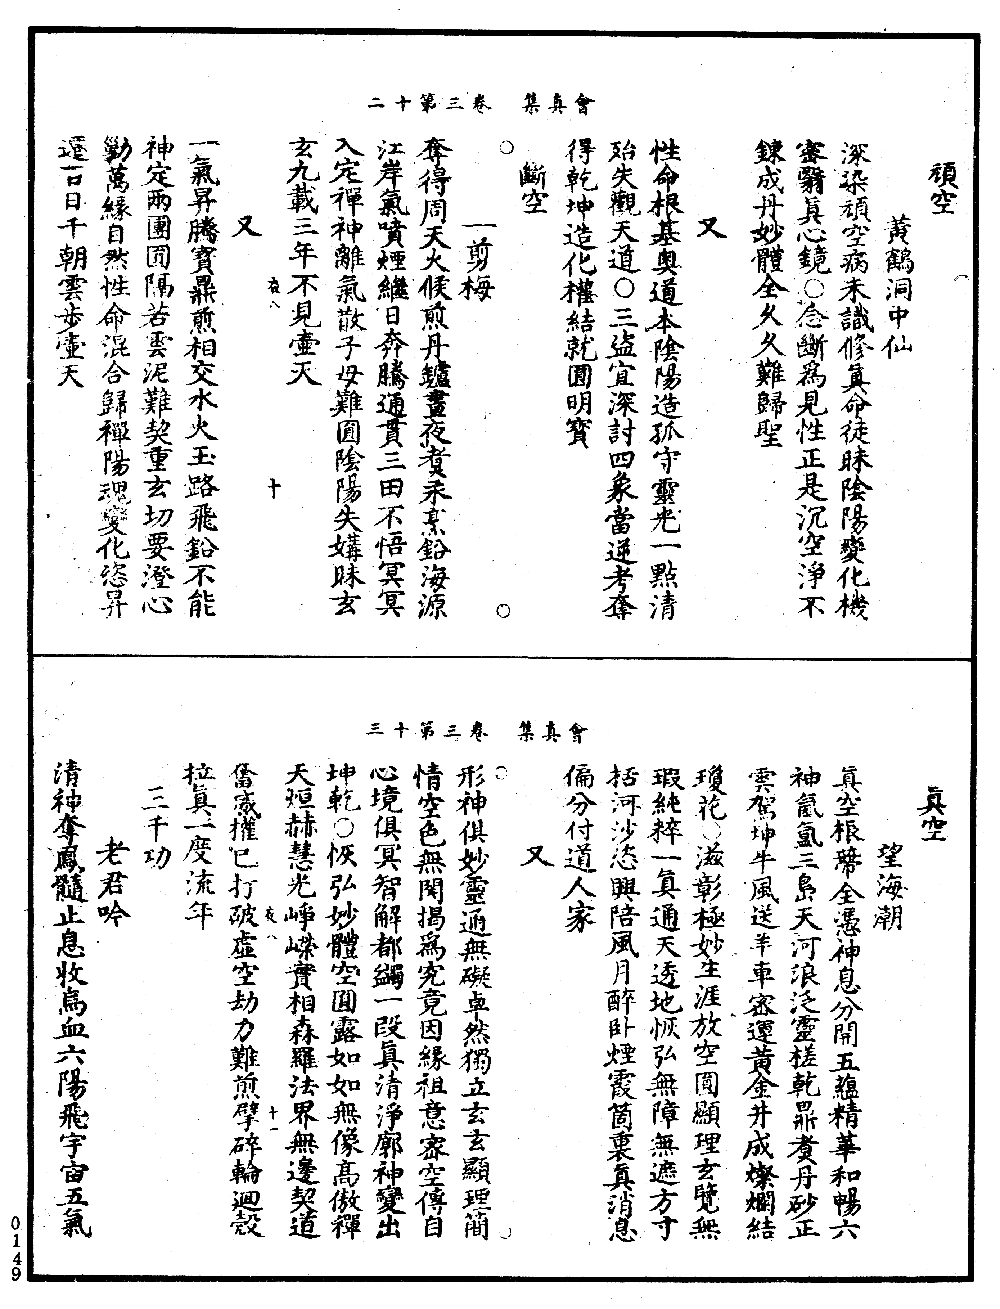 會真集　卷三第十二
頑空
黃鶴洞中仙
深染頑空病未識修真命徒昧陰陽變化機
密翳真心鏡○念斷爲見性正是沉空淨不
鍊成丹妙體全久久難歸聖
又
性命根基奧道本陰陽造孤守靈光一點清
殆失觀天道○三盜宜深討四象當逆考奪
得乾坤造化權結就圓明寶
斷空
一剪梅
奪得周天火候煎丹鑪晝夜煑汞烹鉛海源
江岸氣噴煙繼日奔騰通貫三田不悟冥冥
入定禪神離氣散子母難圓陰陽失媾昧玄
玄九載三年不見壺天
夜八　十
又
一氣昇騰寶鼎煎相交水火玉路飛鉛不能
神定兩團圓隔若雲泥難契重玄切要澄心
勦萬緣自然性命混合歸禪陽魂變化恣昇
遷一百日千朝雲步壺天
會真集　卷三第十三
真空
望海潮
真空根蔕全憑神息分開五蘊精華和暢六
神氤氳三島天河浪泛靈槎乾鼎煑丹砂正
雲駕坤牛風送羊車密運黃金井成燦爛結
瓊花○滋彰極妙生涯放空圓顯理玄覽無
瑕純粹一真通天透地恢弘無障無遮方寸
括河沙恣興陪風月醉卧煙霞箇裏真消息
偏分付道人家
又
形神俱妙靈通無礙卓然獨立玄玄顯理簡
情空色無閑揭爲究竟因緣祖意密空傳自
心境俱冥智解都蠲一段真清淨廓神變出
坤乾○恢弘妙體空圓露如如無像高傲禪
天烜赫慧光崢嶸實相森羅法界無邊契道
夜八　十一
奮威權已打破虛空劫力難煎擘碎輪迴殼
拉真一度流年
三千功
老君吟
清神奪鳳髓止息收烏血六陽飛宇宙五氣
0149